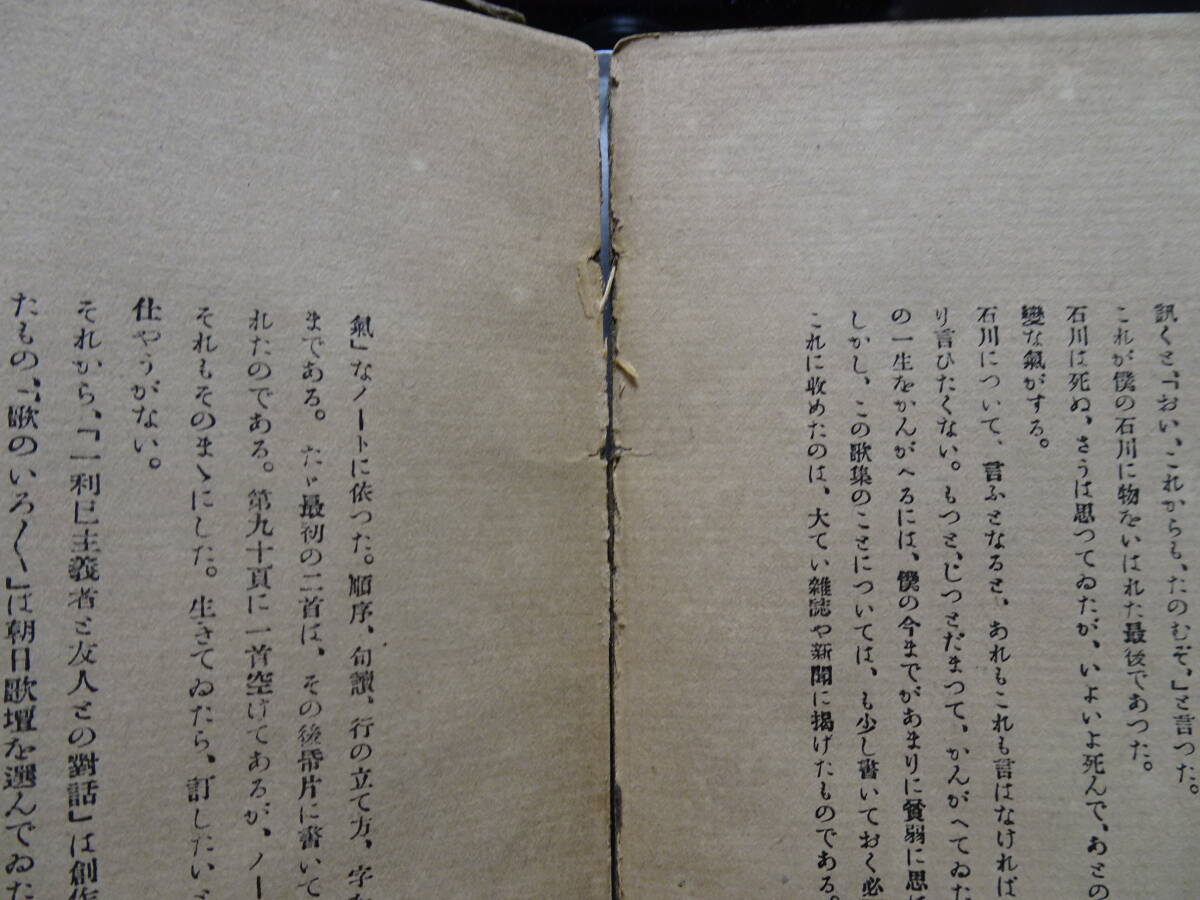 訊くと、「おい、これからも、たのむぞ、」と言つた。
これが僕の石川に物をいはれた最後であつた。
石川は死ぬ、さうは思つてゐたが、いよいよ死んで、あとの
變な氣がする。
石川について、言ふとなると、あれもこれも言はなければ
り言ひたくない。もつと、じつとだまつて、かんがへてゐた
の一生をかんがへるには、僕の今までがあまりに貧弱に思
しかし、この歌集のことについては、も少し書いておく必
これに收めたのは、大てい雜誌や新聞に揭げたものである。
氣」なノートに依つた。順序、句讀、行の立て方、字
まである。たゞ最初の二首は、その後帋片に書いて
れたのである。第九十頁に一首空けてあるが、ノー
それもそのまゝにした。生きてゐたら、訂したい
仕やうがない。
それから、「一利己主義者と友人との對話」は創作
たもの、「歌のいろ〳〵」は朝日歌壇を選んでゐた